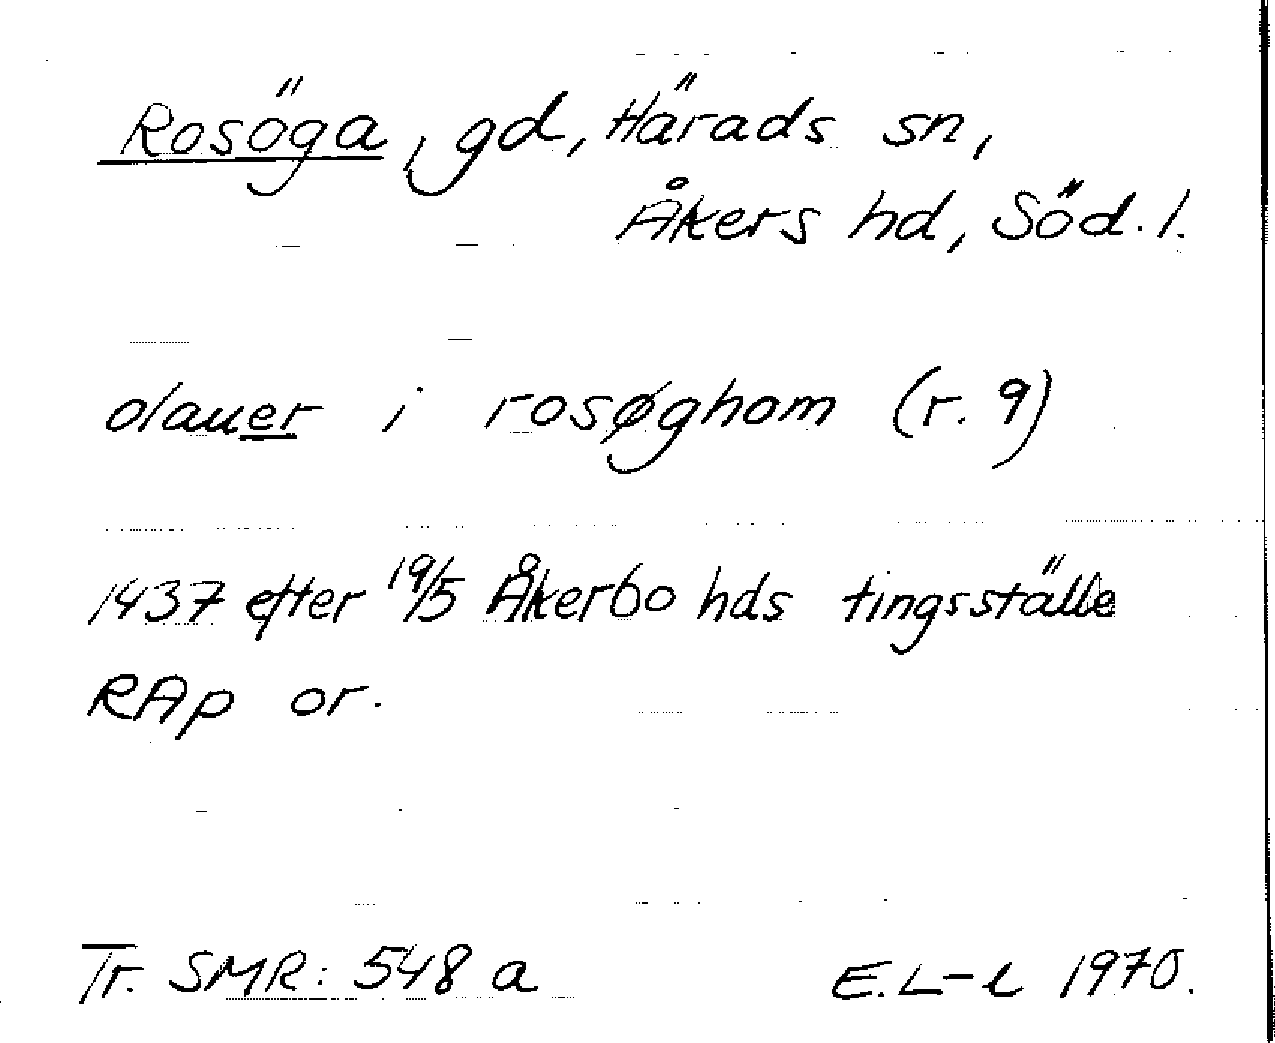 Rosöga, gd, Härads sn,
Åkers hd, Söd. l.
olauer i rosøghom (r. 9)
1437 efter 19/5 Åkerbo hds tingsställe
RAp or.
Tr. SMR: 548 a E.L-l 1970.